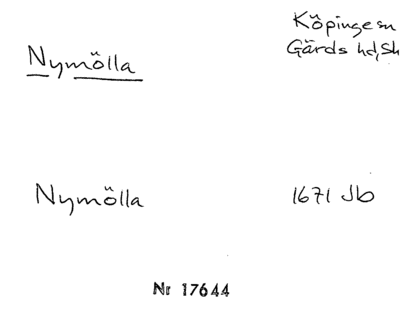 Nymölla
Köpinge sn
Gärds hd, Sk
Nymölla
1671 Jb
Nr 17644